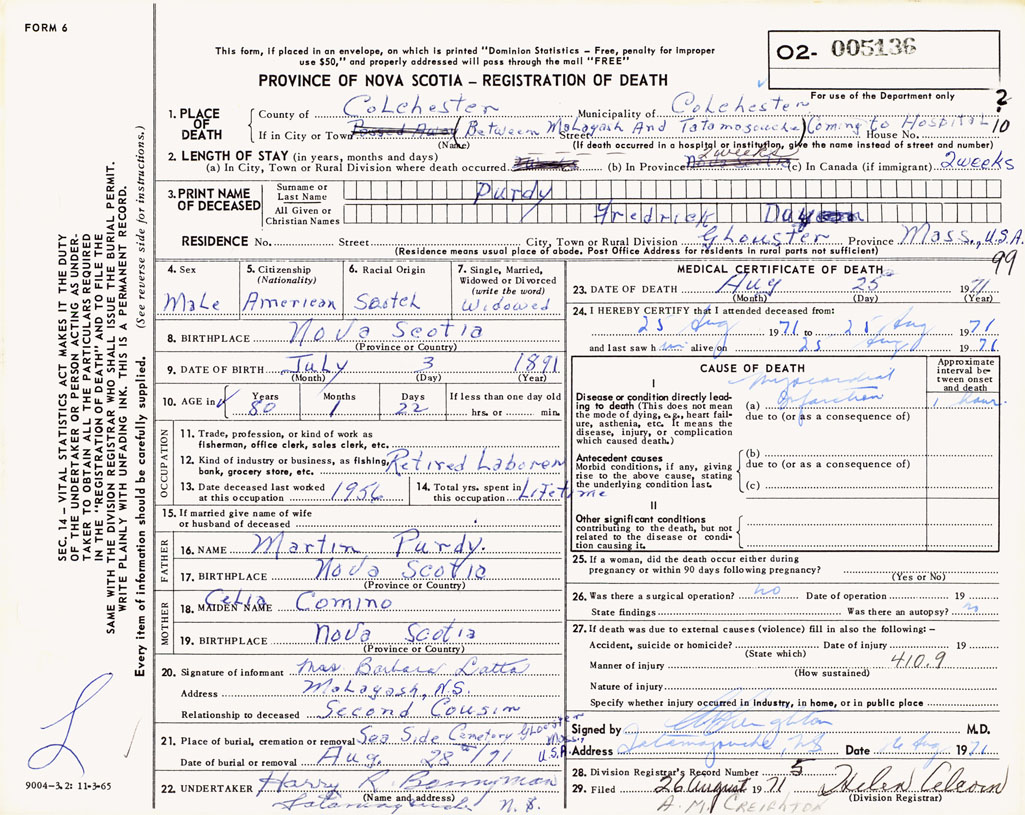 FORM 6
This form, if placed in an envelope, on which is printed "Dominion Statistics – Free, penalty for improper
use $50," and properly addressed will pass through the mail "FREE"
02- 005136
PROVINCE OF NOVA SCOTIA – REGISTRATION OF DEATH
For use of the Department only
2
10
1. PLACE OF DEATH
County of Colchester Municipality of Colchester
If in City or Town (Between Malagash And Tatamagouche) Coming to Hospital
Street House No.
(Name) (If death occurred in a hospital or institution, give the name instead of street and number)
2. LENGTH OF STAY (in years, months and days)
(a) In City, Town or Rural Division where death occurred (b) In Province 2 weeks (c) In Canada (if immigrant) 2 weeks
3. PRINT NAME OF DECEASED
Surname or Last Name Purdy
All Given or Christian Names Fredrick Day
RESIDENCE No. Street City, Town or Rural Division Glouster Province Mass., U.S.A.
(Residence means usual place of abode. Post Office Address for residents in rural parts not sufficient)
99
4. Sex
Male
5. Citizenship (Nationality)
American
6. Racial Origin
Scotch
7. Single, Married, Widowed or Divorced (write the word)
Widowed
8. BIRTHPLACE Nova Scotia
(Province or Country)
9. DATE OF BIRTH July 3 1891
(Month) (Day) (Year)
10. AGE in Years Months Days If less than one day old
80 1 22 hrs. or min.
OCCUPATION
11. Trade, profession, or kind of work as
fisherman, office clerk, sales clerk, etc.
12. Kind of industry or business, as fishing,
bank, grocery store, etc. Retired Laborer
13. Date deceased last worked
at this occupation 1956
14. Total yrs. spent in
this occupation Lifetime
15. If married give name of wife
or husband of deceased
FATHER
16. NAME Martin Purdy.
17. BIRTHPLACE Nova Scotia
(Province or Country)
MOTHER
18. MAIDEN NAME Celia Comino
19. BIRTHPLACE Nova Scotia
(Province or Country)
20. Signature of informant Mrs. Barbara Latta
Address Malagash, N.S.
Relationship to deceased Second Cousin
21. Place of burial, cremation or removal Sea Side Cemetery Glocester Mass., U.S.A.
Date of burial or removal Aug. 28th/71
22. UNDERTAKER Harry R. Bonnyman
(Name and address)
Tatamagouche N.S.
MEDICAL CERTIFICATE OF DEATH
23. DATE OF DEATH Aug 25 1971
(Month) (Day) (Year)
24. I HEREBY CERTIFY that I attended deceased from:
25 Aug 1971 to 25 Aug 1971
and last saw him alive on 25 Aug 1971
CAUSE OF DEATH
Approximate interval between onset and death
I
Disease or condition directly leading to death (This does not mean the mode of dying, e.g., heart failure, asthenia, etc. It means the disease, injury, or complication which caused death.)
(a) myocardial infarction 1 hour
due to (or as a consequence of)
Antecedent causes
Morbid conditions, if any, giving rise to the above cause, stating the underlying condition last.
(b)
due to (or as a consequence of)
(c)
II
Other significant conditions
contributing to the death, but not related to the disease or condition causing it.
25. If a woman, did the death occur either during
pregnancy or within 90 days following pregnancy?
(Yes or No)
26. Was there a surgical operation? no Date of operation 19
State findings Was there an autopsy? no
27. If death was due to external causes (violence) fill in also the following: –
Accident, suicide or homicide? Date of injury 19
(State which)
Manner of injury 410.9
(How sustained)
Nature of injury
Specify whether injury occurred in industry, in home, or in public place
Signed by M.D.
Address Tatamagouche, NS Date 26 Aug 1971
28. Division Registrar's Record Number 5
29. Filed 26 August 1971 Helen
(Division Registrar)
A. M. CREIGHTON
SEC. 14 – VITAL STATISTICS ACT MAKES IT THE DUTY
OF THE UNDERTAKER OR PERSON ACTING AS UNDER-
TAKER TO OBTAIN ALL THE PARTICULARS REQUIRED
IN THE "REGISTRATION OF DEATH" AND TO FILE THE
SAME WITH THE DIVISION REGISTRAR WHO SHALL ISSUE THE BURIAL PERMIT.
WRITE PLAINLY WITH UNFADING INK. THIS IS A PERMANENT RECORD.
Every item of information should be carefully supplied. (See reverse side for instructions.)
9004–3.2: 11-3-65